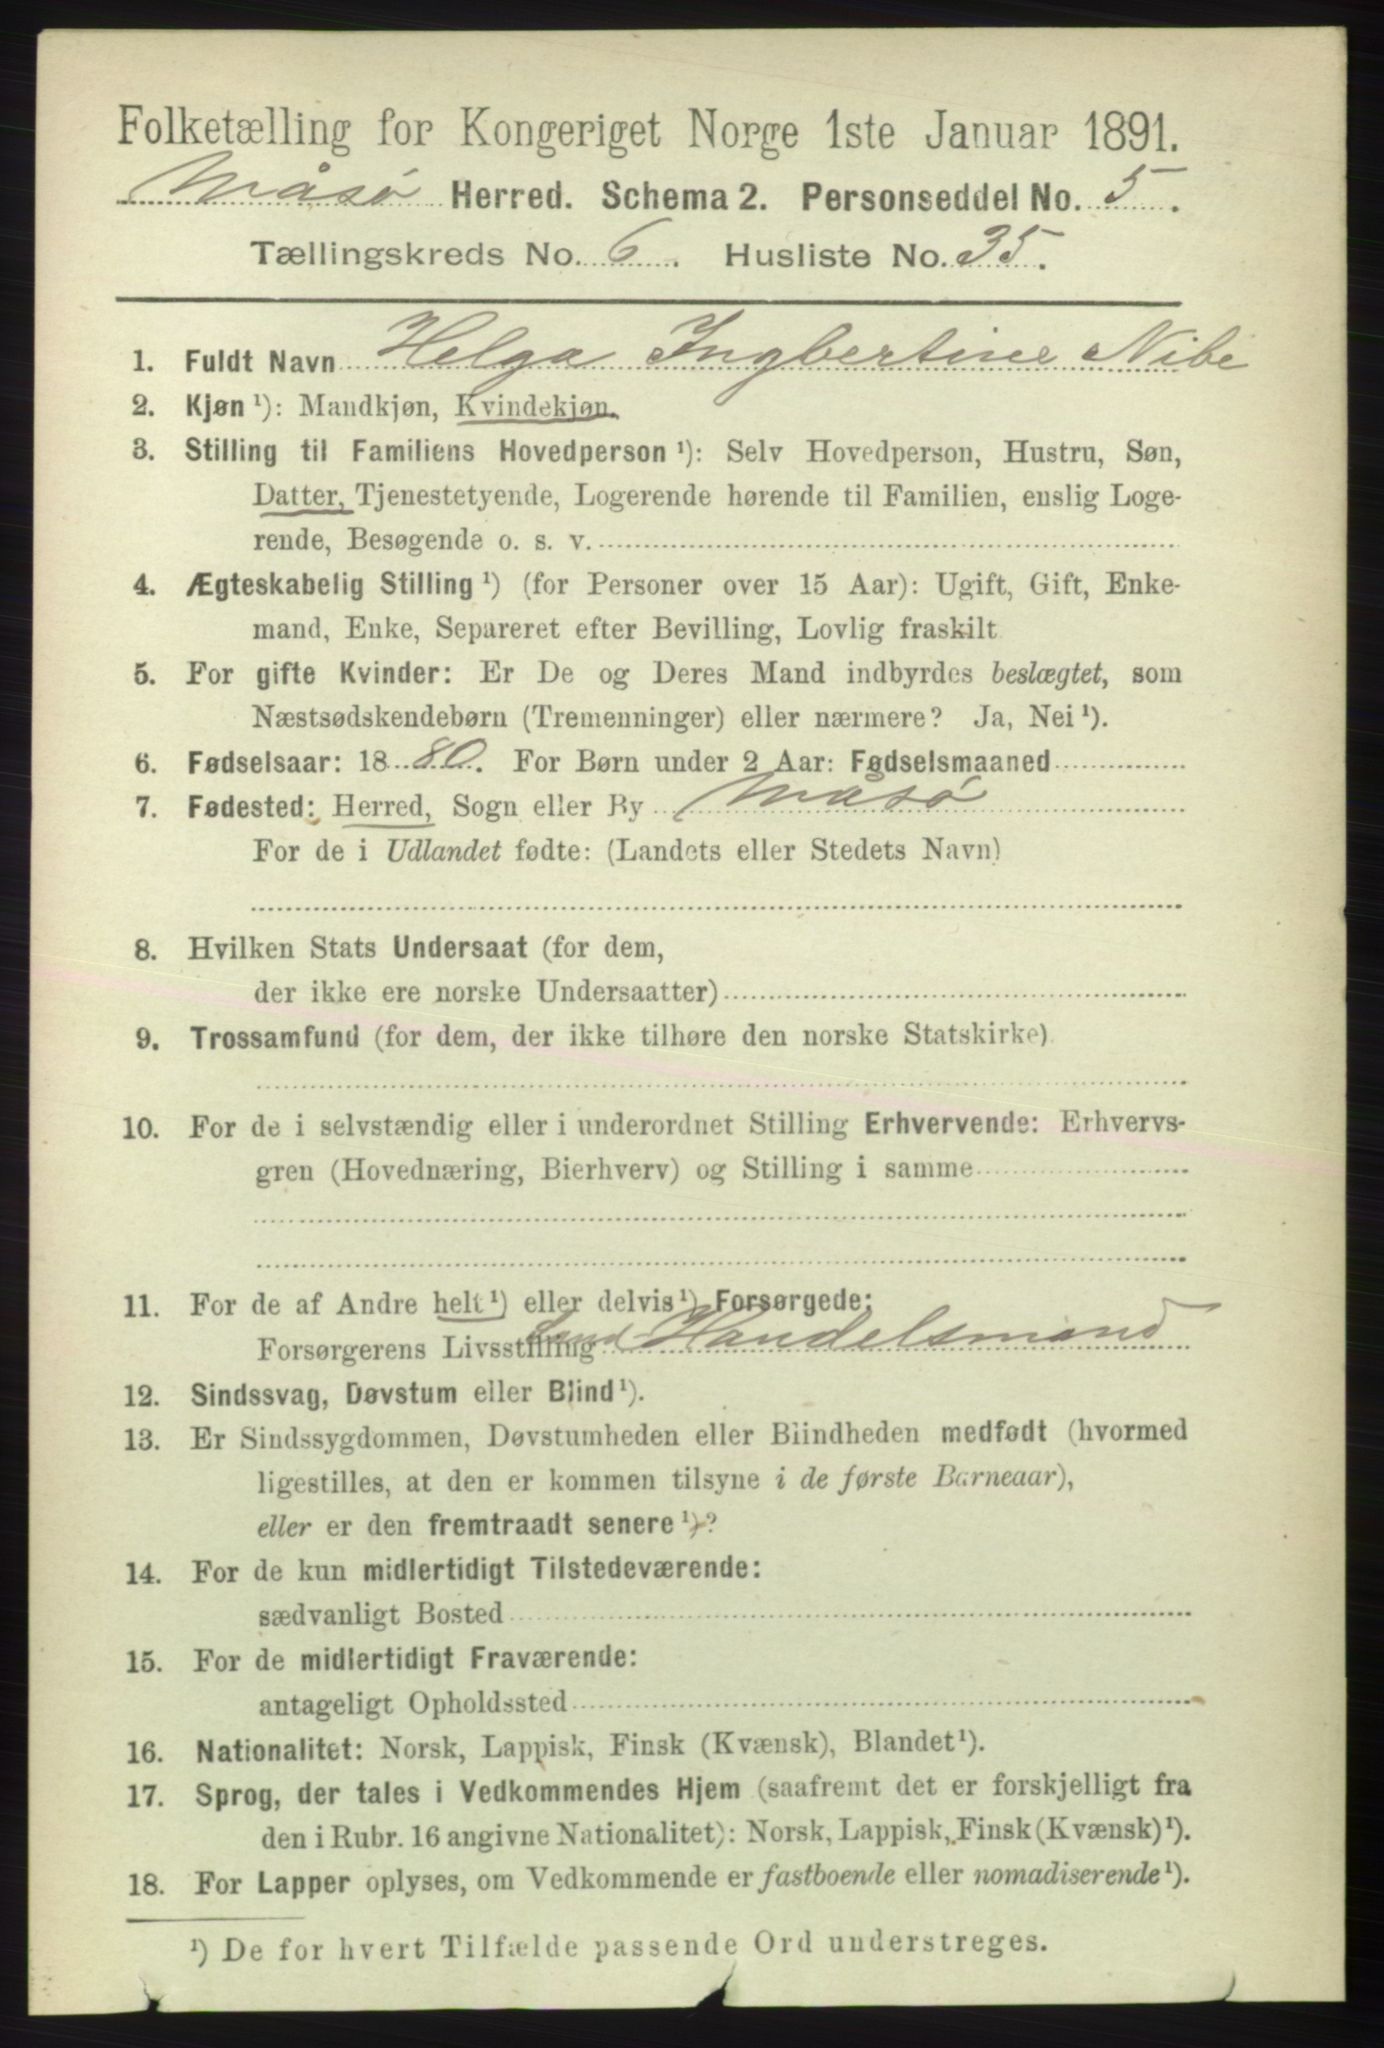 Folketælling for Kongeriget Norge 1ste Januar 1891.
Måsø Herred. Schema 2. Personseddel No. 5.
Tællingskreds No. 6. Husliste No. 35.
1. Fuldt Navn Helga Ingbertine Nibe
2. Kjøn ¹): Mandkjøn, Kvindekjøn.
3. Stilling til Familiens Hovedperson ¹): Selv Hovedperson, Hustru, Søn,
Datter, Tjenestetyende, Logerende hørende til Familien, enslig Loge-
rende, Besøgende o. s. v.
4. Ægteskabelig Stilling ¹) (for Personer over 15 Aar): Ugift, Gift, Enke-
mand, Enke, Separeret efter Bevilling, Lovlig fraskilt
5. For gifte Kvinder: Er De og Deres Mand indbyrdes beslægtet, som
Næstsødskendebørn (Tremenninger) eller nærmere? Ja, Nei ¹).
6. Fødselsaar: 1880. For Børn under 2 Aar: Fødselsmaaned
7. Fødested: Herred, Sogn eller By Måsø
For de i Udlandet fødte: (Landets eller Stedets Navn)
8. Hvilken Stats Undersaat (for dem,
der ikke ere norske Undersaatter)
9. Trossamfund (for dem, der ikke tilhøre den norske Statskirke)
10. For de i selvstændig eller i underordnet Stilling Erhvervende: Erhvervs-
gren (Hovednæring, Bierhverv) og Stilling i samme
11. For de af Andre helt ¹) eller delvis ¹) Forsørgede:
Forsørgerens Livsstilling Land Handelsmand
12. Sindssvag, Døvstum eller Blind ¹).
13. Er Sindssygdommen, Døvstumheden eller Blindheden medfødt (hvormed
ligestilles, at den er kommen tilsyne i de første Barneaar),
eller er den fremtraadt senere ¹)?
14. For de kun midlertidigt Tilstedeværende:
sædvanligt Bosted
15. For de midlertidigt Fraværende:
antageligt Opholdssted
16. Nationalitet: Norsk, Lappisk, Finsk (Kvænsk), Blandet ¹).
17. Sprog, der tales i Vedkommendes Hjem (saafremt det er forskjelligt fra
den i Rubr. 16 angivne Nationalitet): Norsk, Lappisk, Finsk (Kvænsk) ¹).
18. For Lapper oplyses, om Vedkommende er fastboende eller nomadiserende ¹).
¹) De for hvert Tilfælde passende Ord understreges.